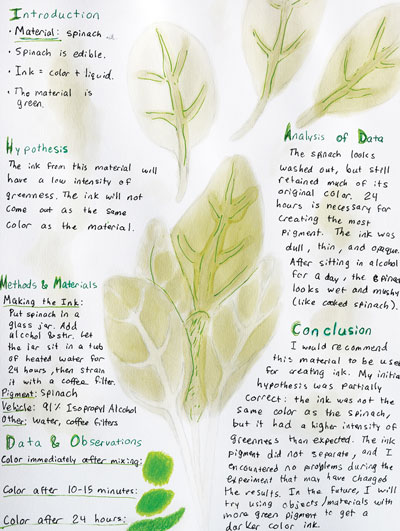 Introduction
• Material: spinach
• Spinach is edible.
• Ink = color + liquid.
• The material is
green.
Hypothesis
The ink from this material will
have a low intensity of
greenness. The ink will not
come out as the same
color as the material.
Methods & Materials
Making the Ink:
Put spinach in a
glass jar. Add
alcohol & stir. Let
the jar sit in a tub
of heated water for
24 hours, then strain
it with a coffee filter.
Pigment: Spinach
Vehicle: 91% Isopropyl Alcohol
Other: Water, coffee filters
Data & Observations
Color immediately after mixing:
Color after 10-15 minutes:
Color after 24 hours:
Analysis of Data
The spinach looks
washed out, but still
retained much of its
original color. 24
hours is necessary for
creating the most
pigment. The ink was
dull, thin, and opaque.
After sitting in alcohol
for a day, the spinach
looks wet and mushy
(like cooked spinach).
Conclusion
I would recommend
this material to be used
for creating ink. My initial
hypothesis was partially
correct: the ink was not the
same color as the spinach,
but it had a higher intensity of
greenness than expected. The ink
pigment did not separate, and I
encountered no problems during the
experiment that may have changed
the results. In the future, I will
try using objects/materials with
more green pigment to get a
darker color ink.